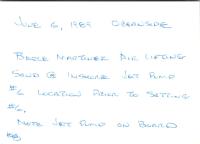 JUNE 6, 1989 OCEANSIDE
BARGE MARINER AIR LIFTING
SAND @ INSHORE JET PUMP
#6 LOCATION PRIOR TO SETTING
#6.
NOTE JET PUMP ON BOARD